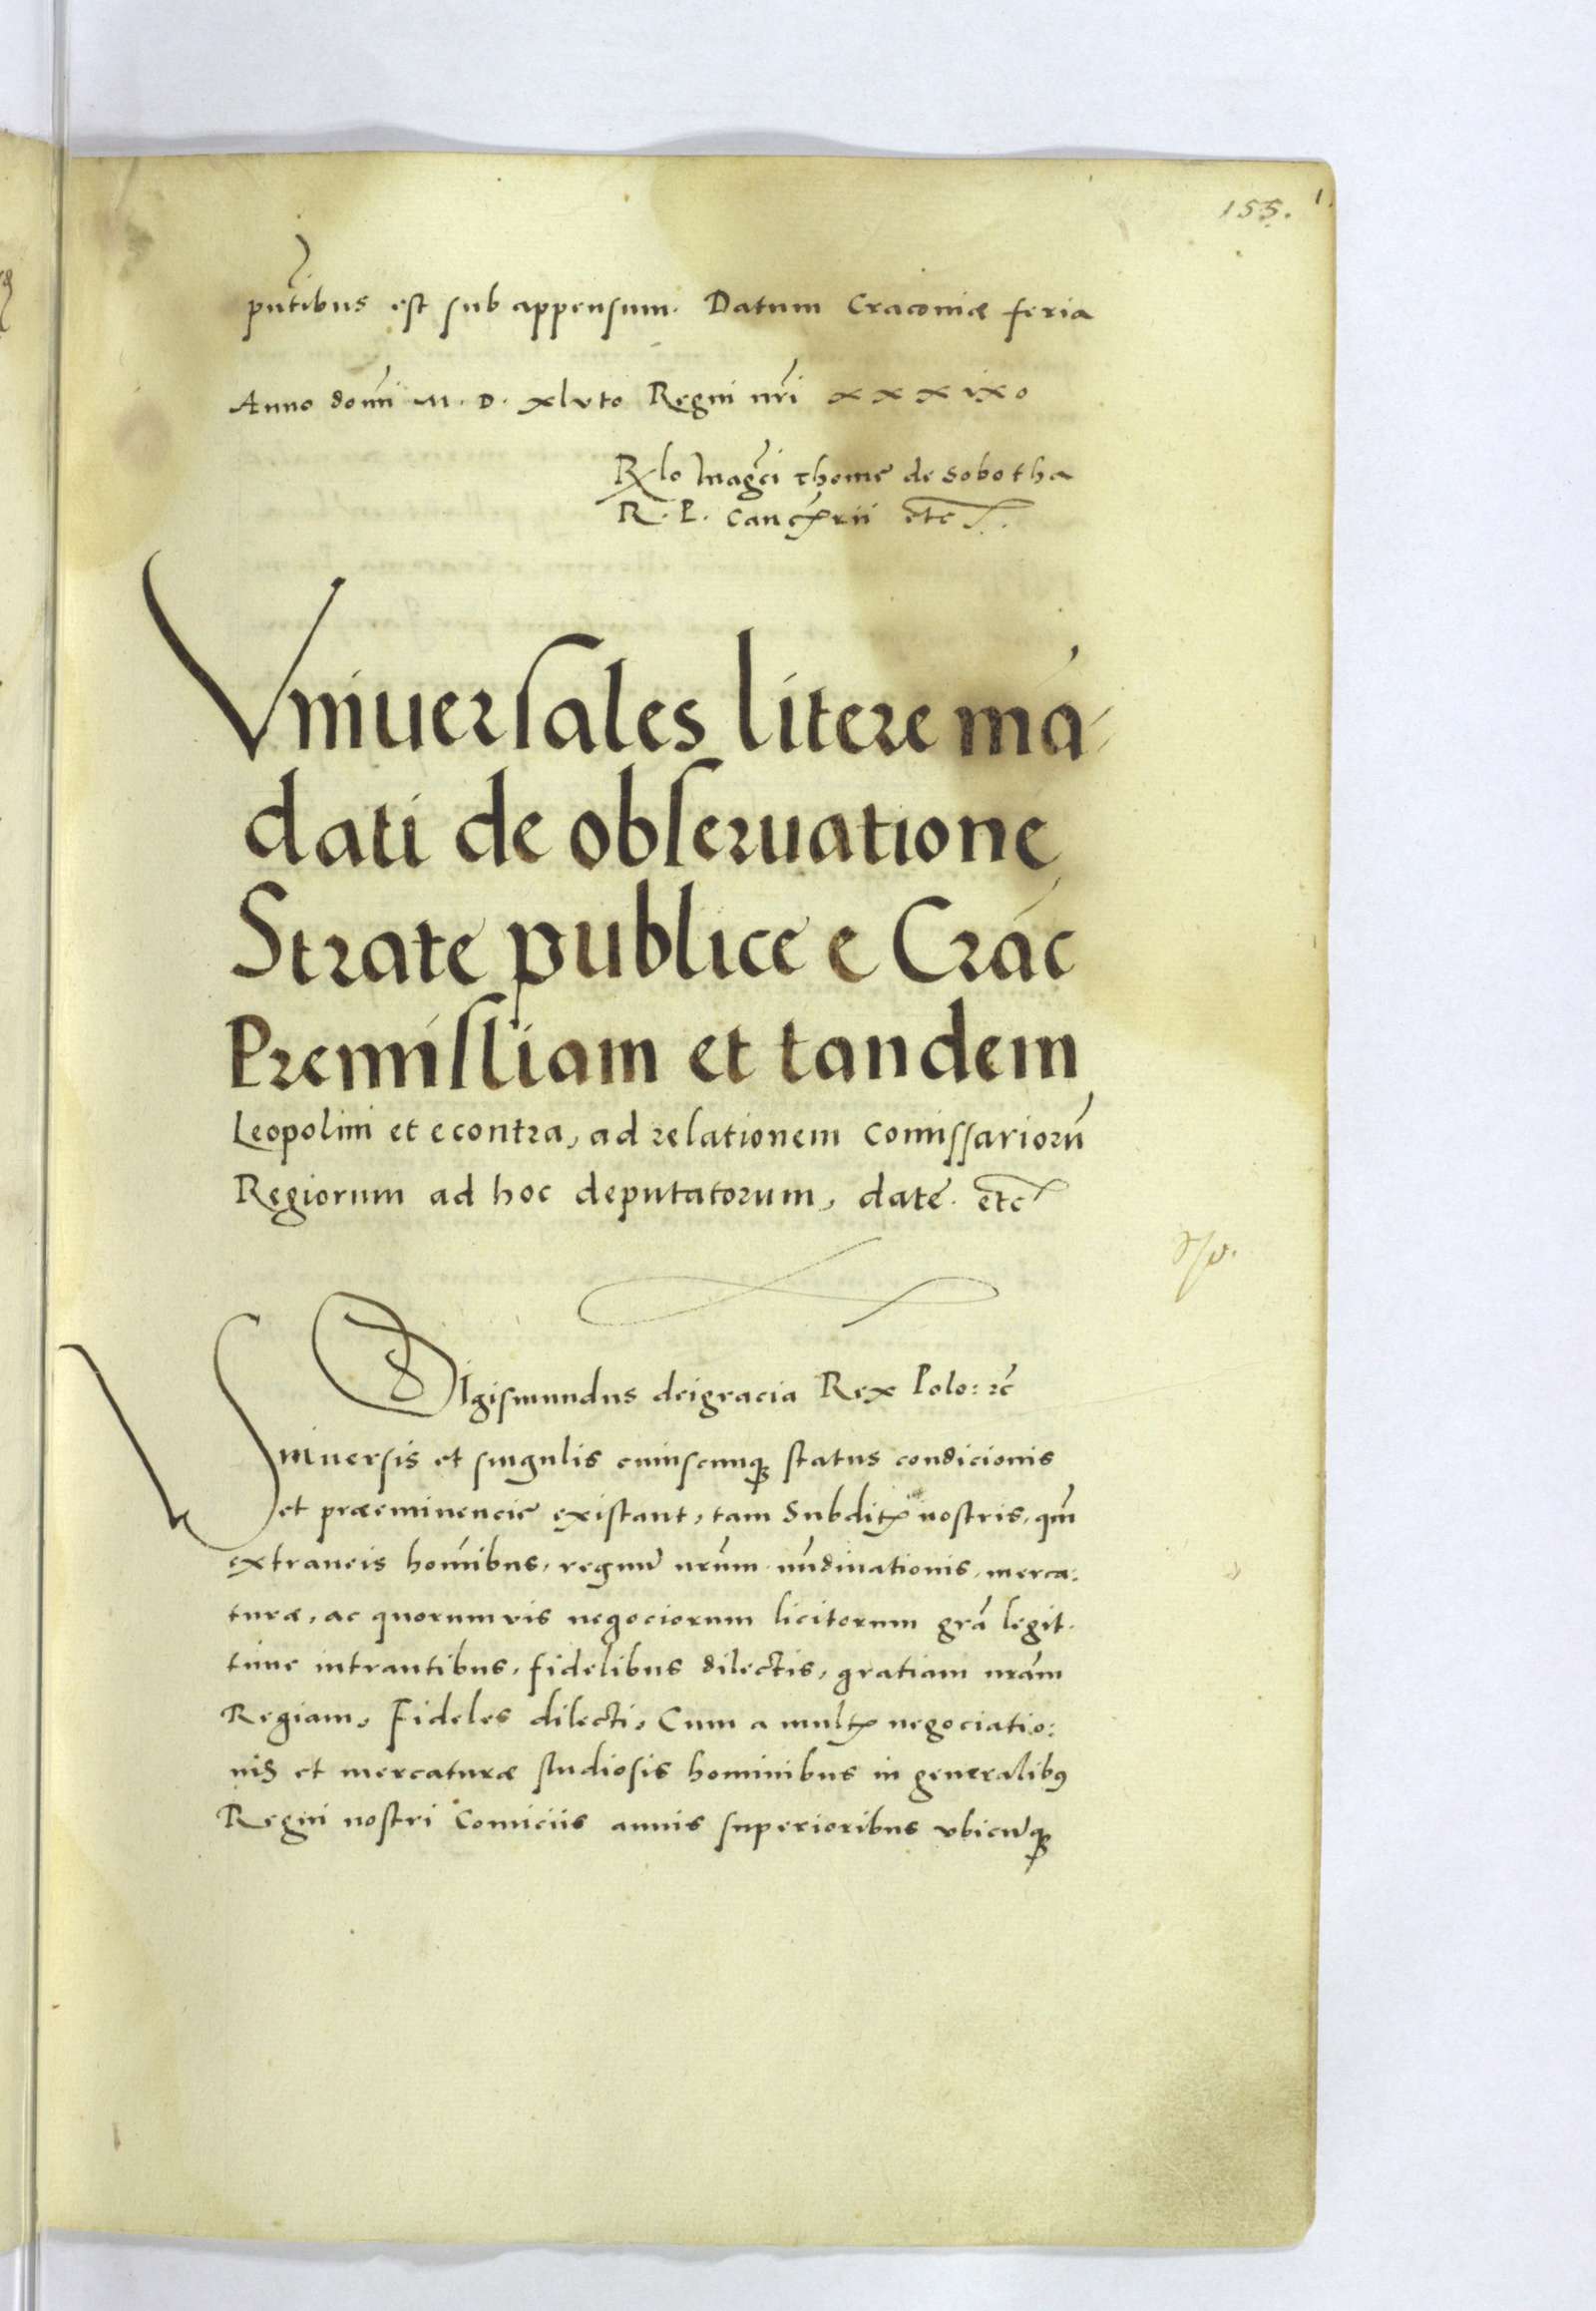 155.
pn̄tibus est sub appensum. Datum Cracoviæ feria
Anno domī M. D. xlvto Regni nr̄i xxxixo
Rlo Maḡci Thome de Sobotha
R. P. Canc̄rii etc.
Vniuersales litere mā-
dati de obseruatione
Strate publice e Crac̄
Premisliam et tandem
Leopolim et econtra, ad relationem Comissariorū
Regiorum ad hoc deputatorum, date. etc
Sigismundus dei gracia Rex Polo: ꝛc̄
Vniuersis et singulis cuiuscunqꝫ status condicionis
et præeminencie existant, tam Subditꝭ nostris, qm̄
extraneis homībus, regnū nr̄um nūdinationis, merca:
turæ, ac quorumvis negociorum licitorum grā legit.
time intrantibus, fidelibus dilectis, gratiam nr̄am
Regiam, Fideles dilecti, Cum a multꝭ negociatio:
nis et mercaturæ studiosis hominibus in generalibꝰ
Regni nostri Comiciis annis superioribus vbicūqꝫ